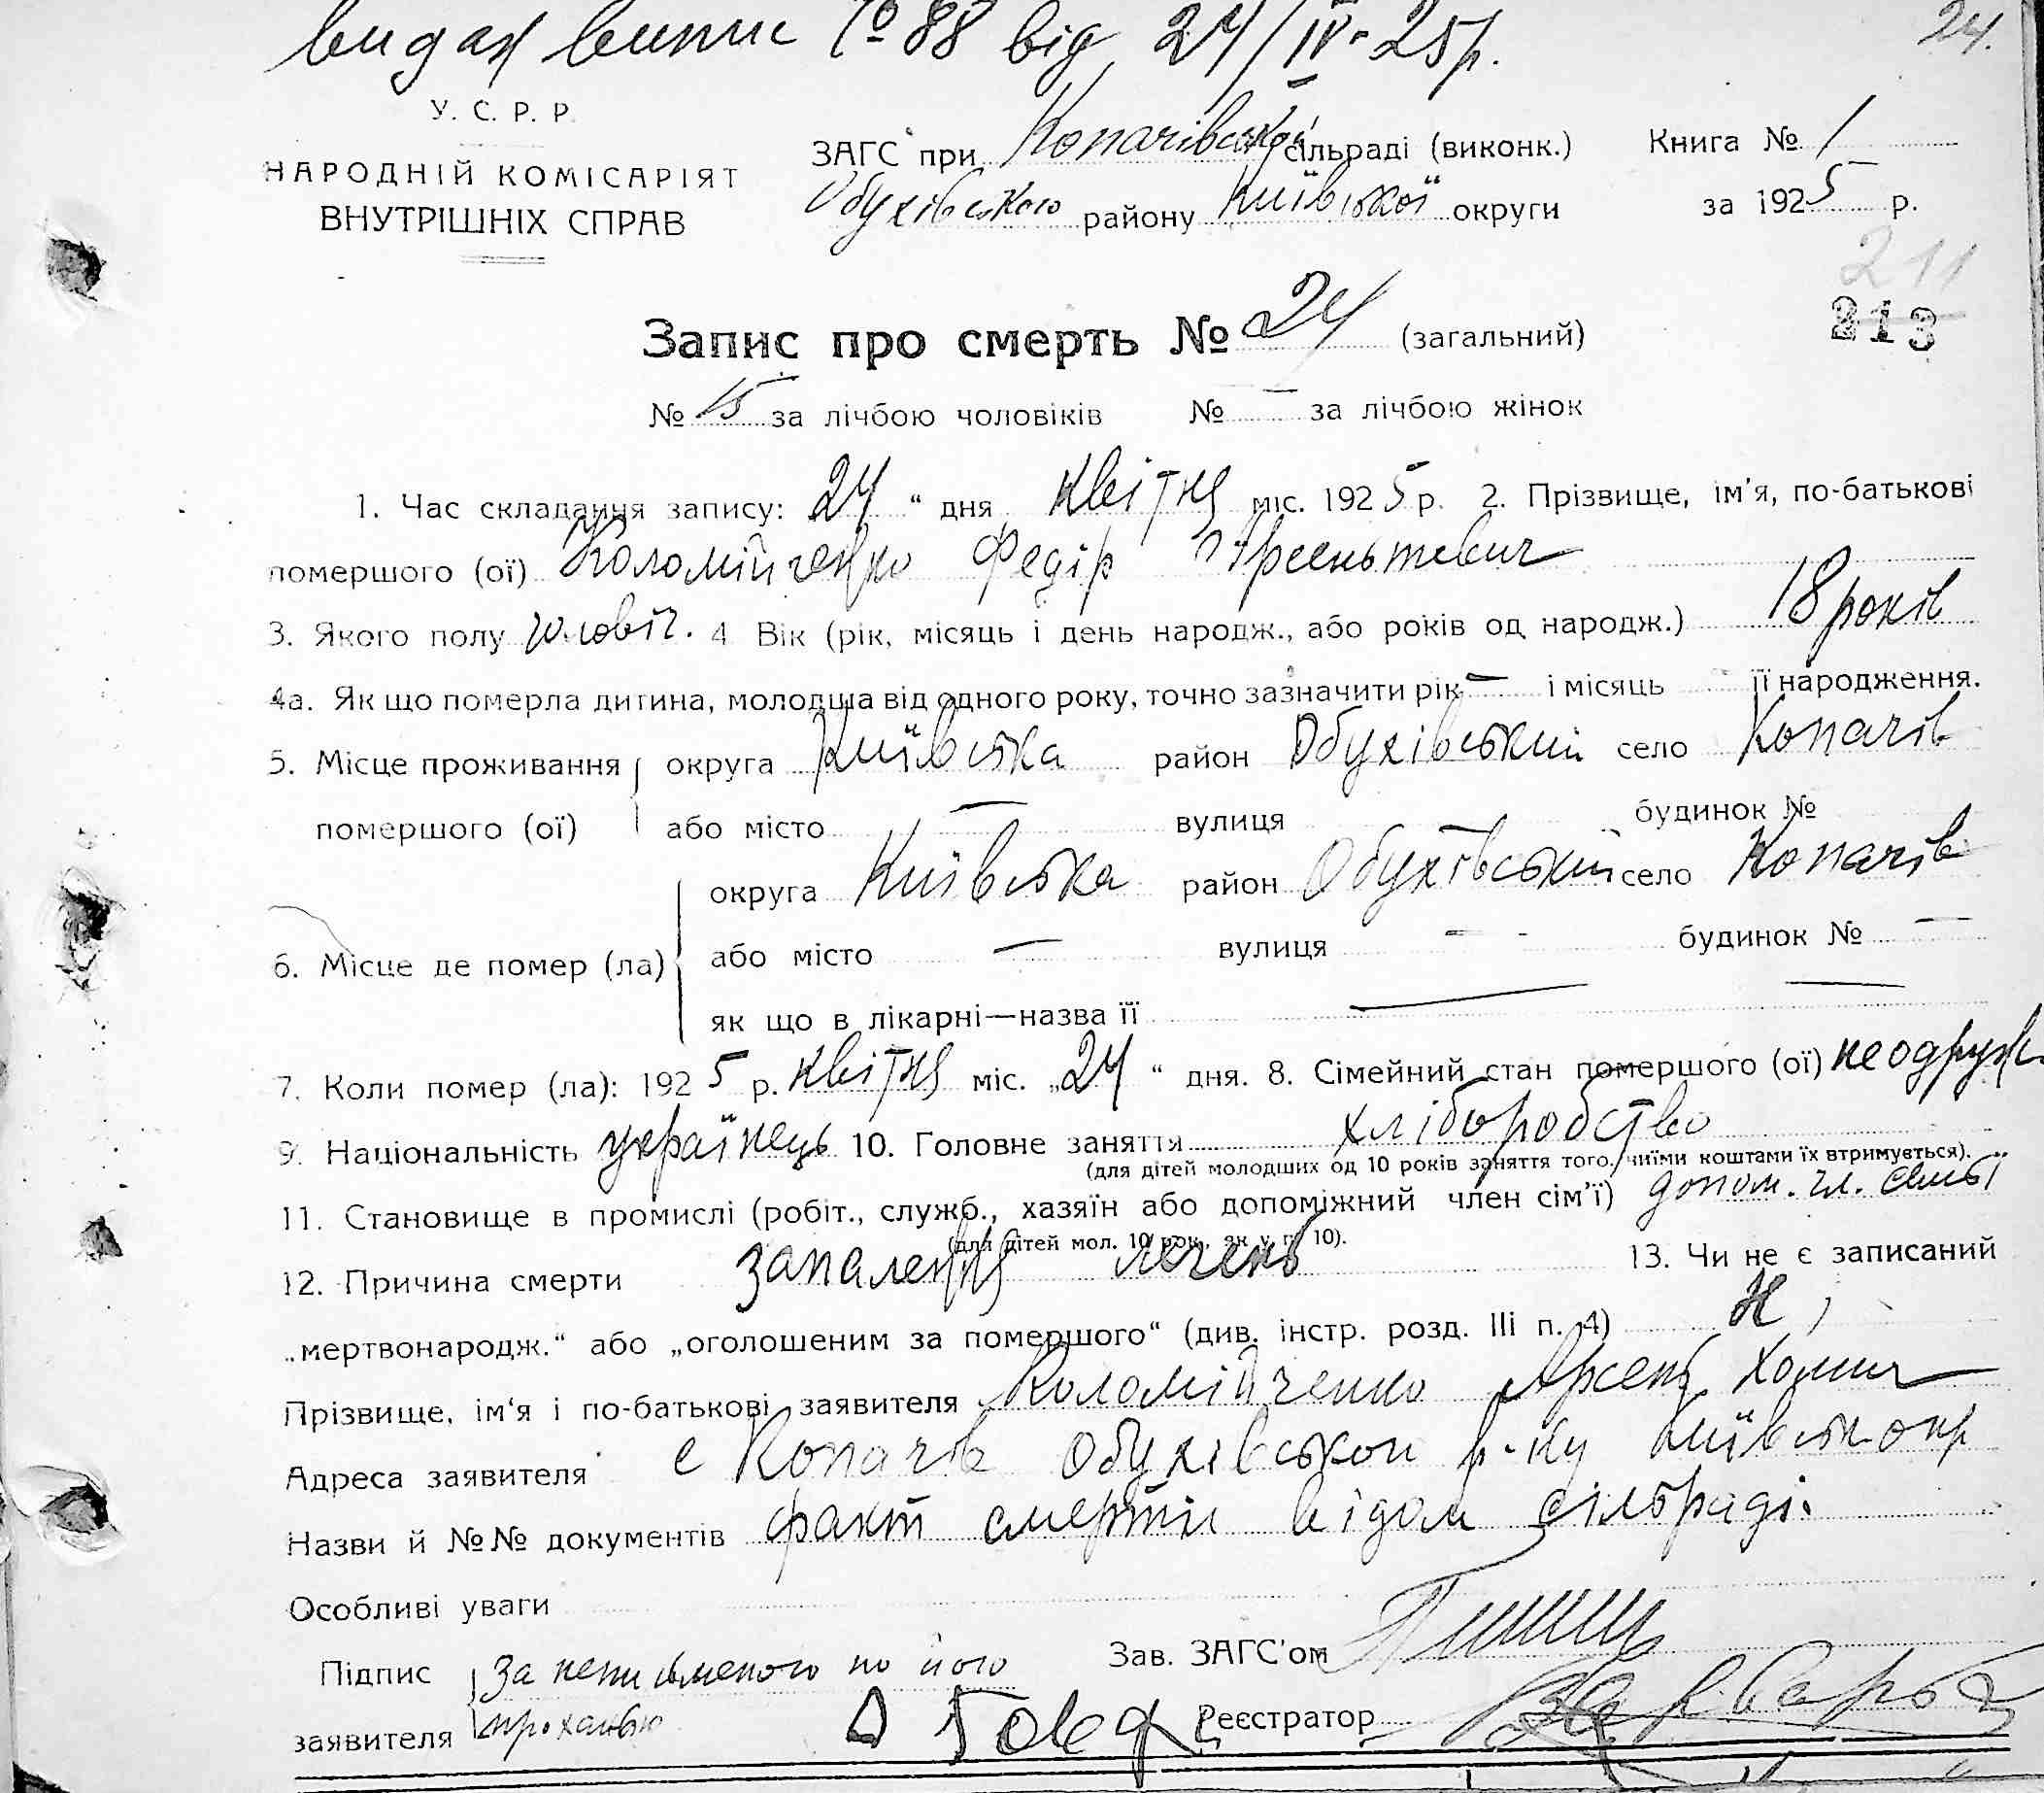 видал випис № 88 від 24/IV-25р. 24.
У. С. Р. Р.
НАРОДНІЙ КОМІСАРІЯТ
ВНУТРІШНІХ СПРАВ
ЗАГС при Копачівській сільраді (виконк.)
Обухівського району Київської округи
Книга № 1
за 1925 р.
211
213
Запис про смерть № 24 (загальний)
№ 15 за лічбою чоловіків № — за лічбою жінок
1. Час складання запису: 24 “ дня квітня міс. 1925 р. 2. Прізвище, ім’я, по-батькові
помершого (ої) Коломійченко Федір Арсеньтевич
3. Якого полу чоловіч. 4 Вік (рік, місяць і день народж., або років од народж.) 18 років
4а. Як що померла дитина, молодша від одного року, точно зазначити рік — і місяць її народження.
5. Місце проживання округа Київська район Обухівський село Копачів
помершого (ої) або місто — вулиця будинок №
округа Київська район Обухівський село Копачів
6. Місце де помер (ла) або місто — вулиця — - будинок № —
як що в лікарні—назва її — —
7. Коли помер (ла): 1925 р. квітня міс. „24 “ дня. 8. Сімейний стан помершого (ої) неодруж.
9. Національність українець 10. Головне заняття хліборобство
(для дітей молодших од 10 років заняття того, чиїми коштами їх втримується).
11. Становище в промислі (робіт., служб., хазяїн або допоміжний член сім’ї) допом. чл. семьї
(для дітей мол. 10 рок., як у п. 10).
12. Причина смерти запалення легень 13. Чи не є записаний
„мертвонародж.“ або „оголошеним за помершого“ (див. інстр. розд. III п. 4) Ні
Прізвище, ім‘я і по-батькові заявителя Коломійченко Арсень Хомич
Адреса заявителя с Копачів Обухівськои р-ну Київськ окр
Назви й №№ документів факт смерти відом сільраді.
Особливі уваги
Підпис За неписьменого по його Зав. ЗАГС’ом
заявителя проханью Реєстратор